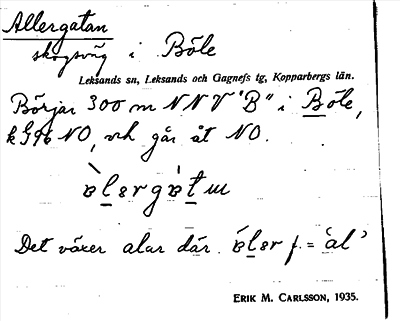 Allergatan
skogsväg i Böle
Leksands sn, Leksands och Gagnefs tg, Kopparbergs län.
Börjar 300 m NNV "B" i Böle,
k G96 NO, och går åt NO.
Det växer alar där. f. = 'al'
ERIK M. CARLSSON, 1935.